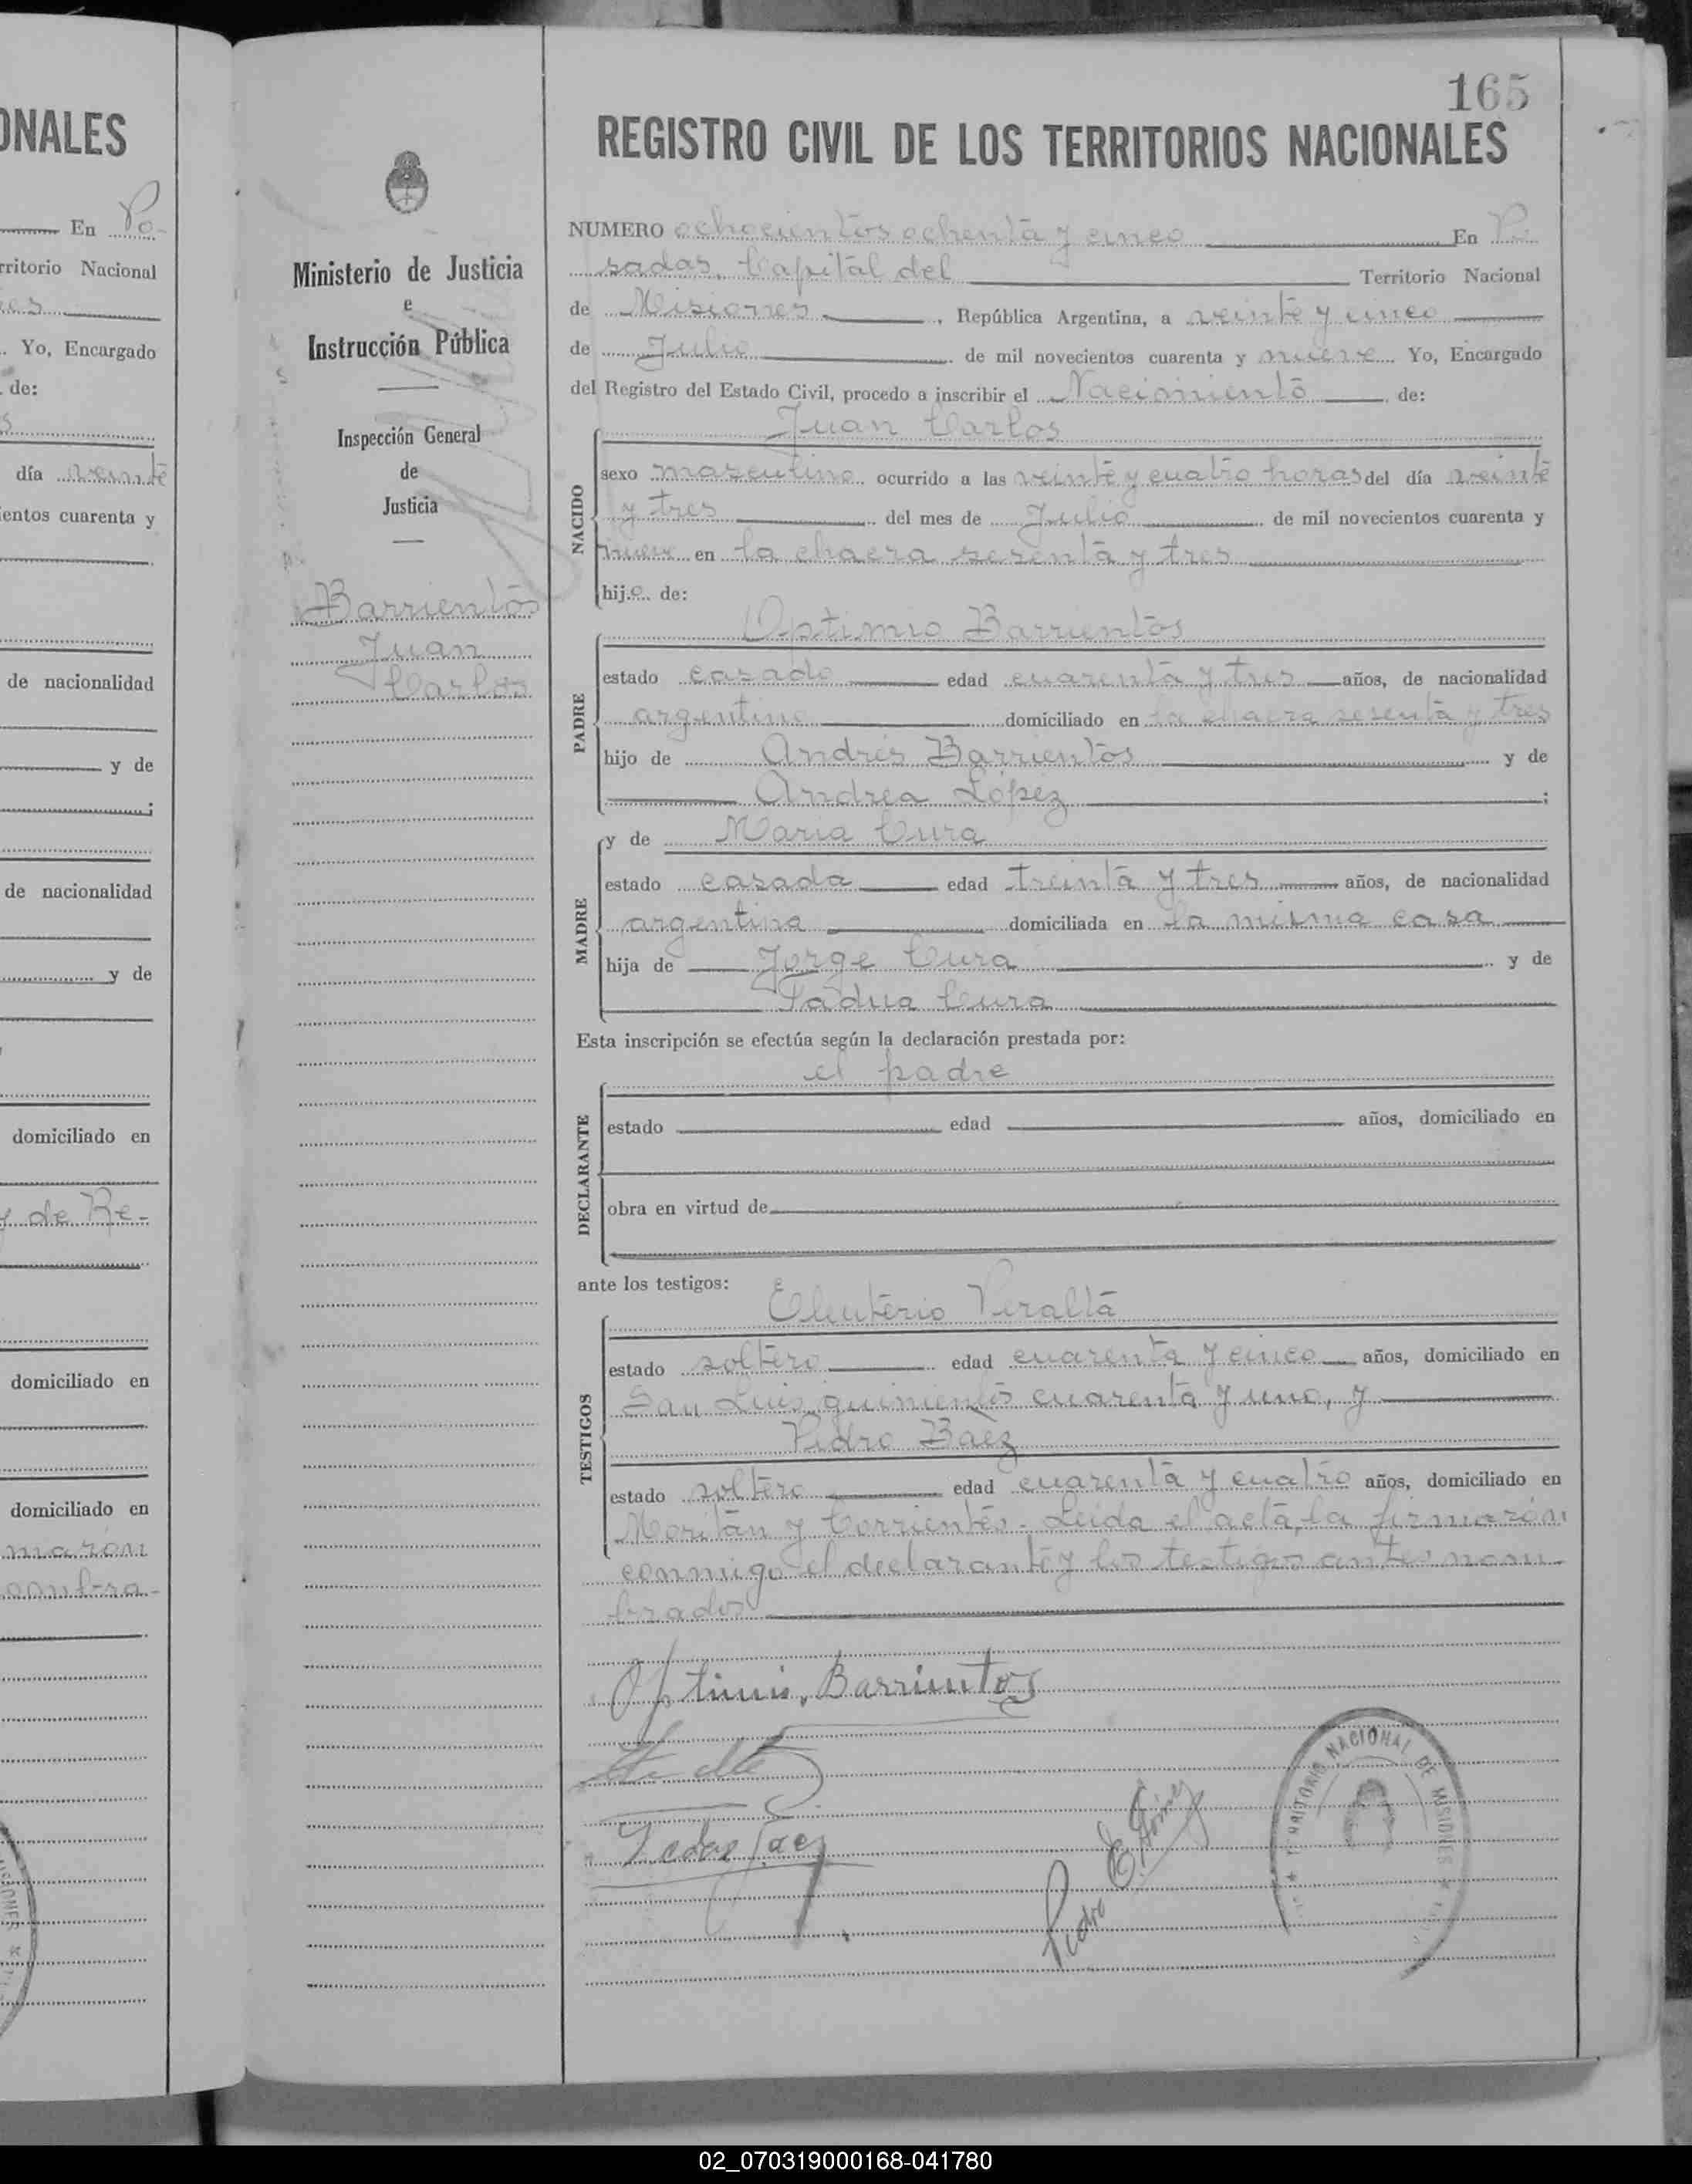 ONALES
En Po-
rritorio Nacional
es
. Yo, Encargado
de:
s
día veinte
ientos cuarenta y
de nacionalidad
y de
;
de nacionalidad
y de
domiciliado en
y de Re-
domiciliado en
domiciliado en
maron
Ministerio de Justicia
e
Instrucción Pública
Inspección General
de
Justicia
Barrientos
Juan
Carlos
165
REGISTRO CIVIL DE LOS TERRITORIOS NACIONALES
NUMERO ochocientos ochenta y cinco En Po
sadas, Capital del Territorio Nacional
de Misiones, República Argentina, a veinte y cinco
de Julio de mil novecientos cuarenta y nueve Yo, Encargado
del Registro del Estado Civil, procedo a inscribir el Nacimiento de:
Juan Carlos
NACIDO
sexo masculino ocurrido a las veinte y cuatro horas del día veinte
y tres del mes de Julio de mil novecientos cuarenta y
nueve en la chacra sesenta y tres
hijo de:
Optimio Barrientos
PADRE
estado casado edad cuarenta y tres años, de nacionalidad
argentino domiciliado en la chacra sesenta y tres
hijo de Andrés Barrientos y de
Andrea López ;
MADRE
y de Maria Cura
estado casada edad treinta y tres años, de nacionalidad
argentina domiciliada en la misma casa
hija de Jorge Cura y de
Fadua Cura
Esta inscripción se efectúa según la declaración prestada por:
el padre
DECLARANTE
estado edad años, domiciliado en
obra en virtud de
ante los testigos:
Eleuterio Peralta
TESTIGOS
estado soltero edad cuarenta y cinco años, domiciliado en
San Luis quinientos cuarenta y uno, y
Pedro Báez
estado soltero edad cuarenta y cuatro años, domiciliado en
Moritán y Corrientes - Leida el acta, la firmarón
conmigo el declarante y los testigos antes nom-
brados
Optimio Barrientos
Pedro Baez
Pedro E. Gómez
TERRITORIO NACIONAL DE MISIONES
02_070319000168-041780